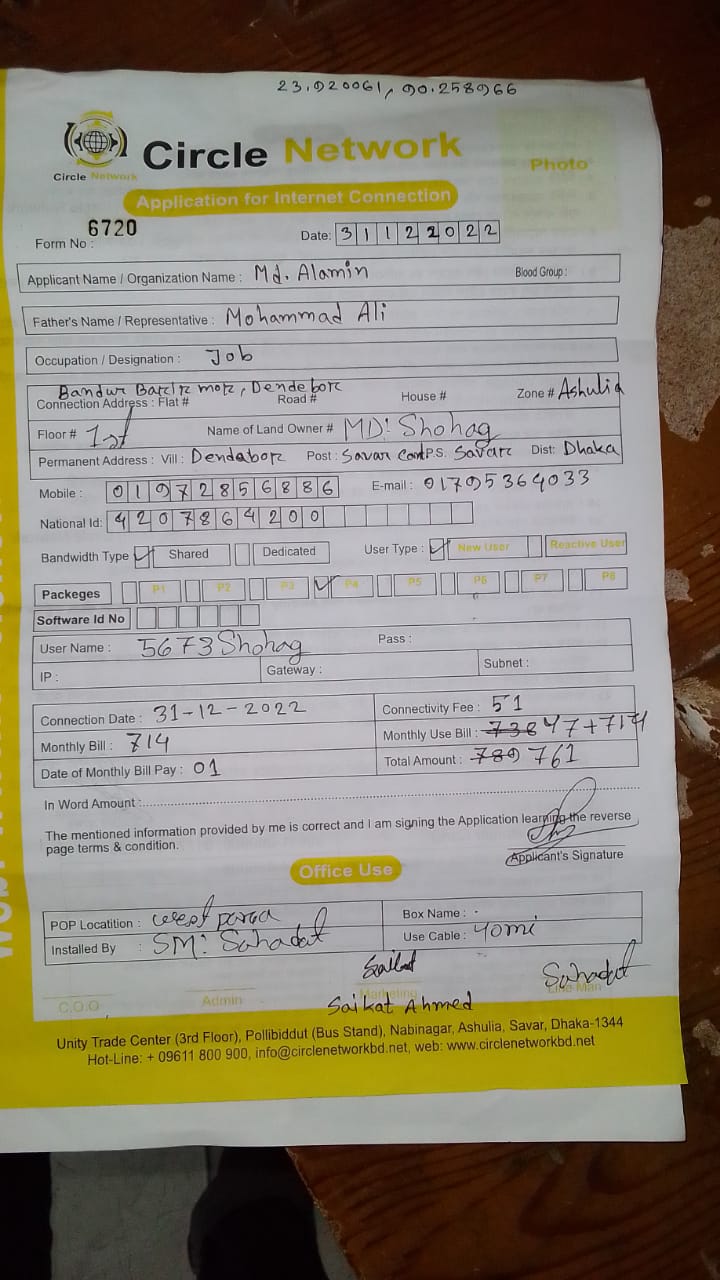 23.920061, 90.258966
Circle Network
Circle Network
Photo
Application for Internet Connection
Form No : 6720
Date: 31122022
Applicant Name / Organization Name : Md. Alamin Blood Group :
Father's Name / Representative : Mohammad Ali
Occupation / Designation : Job
Connection Address : Flat # Road # House # Zone # Ashulia
Floor # 1st Name of Land Owner # MD: Shohag
Permanent Address : Vill : Post : Savar P.S. Dist: Dhaka
Mobile : 01972856886 E-mail : 01795364033
National Id: 4207864200
Bandwidth Type Shared Dedicated User Type : New User Reactive User
Packeges P1 P2 P3 P4 P5 P6 P7 P8
Software Id No
User Name : 5673Shohag Pass :
IP : Gateway : Subnet :
Connection Date : 31-12-2022 Connectivity Fee : 51
Monthly Bill : 714 Monthly Use Bill : 738 47+714
Date of Monthly Bill Pay : 01 Total Amount : 789 761
In Word Amount :
The mentioned information provided by me is correct and I am signing the Application learning the reverse
page terms & condition.
Applicant's Signature
Office Use
POP Locatition : west para Box Name :
Installed By : SM: Sahadat Use Cable : 40mi
Saikat Sahadat
C.O.O Admin Marketing Line Man
Saikat Ahmed
Unity Trade Center (3rd Floor), Pollibiddut (Bus Stand), Nabinagar, Ashulia, Savar, Dhaka-1344
Hot-Line: + 09611 800 900, info@circlenetworkbd.net, web: www.circlenetworkbd.net